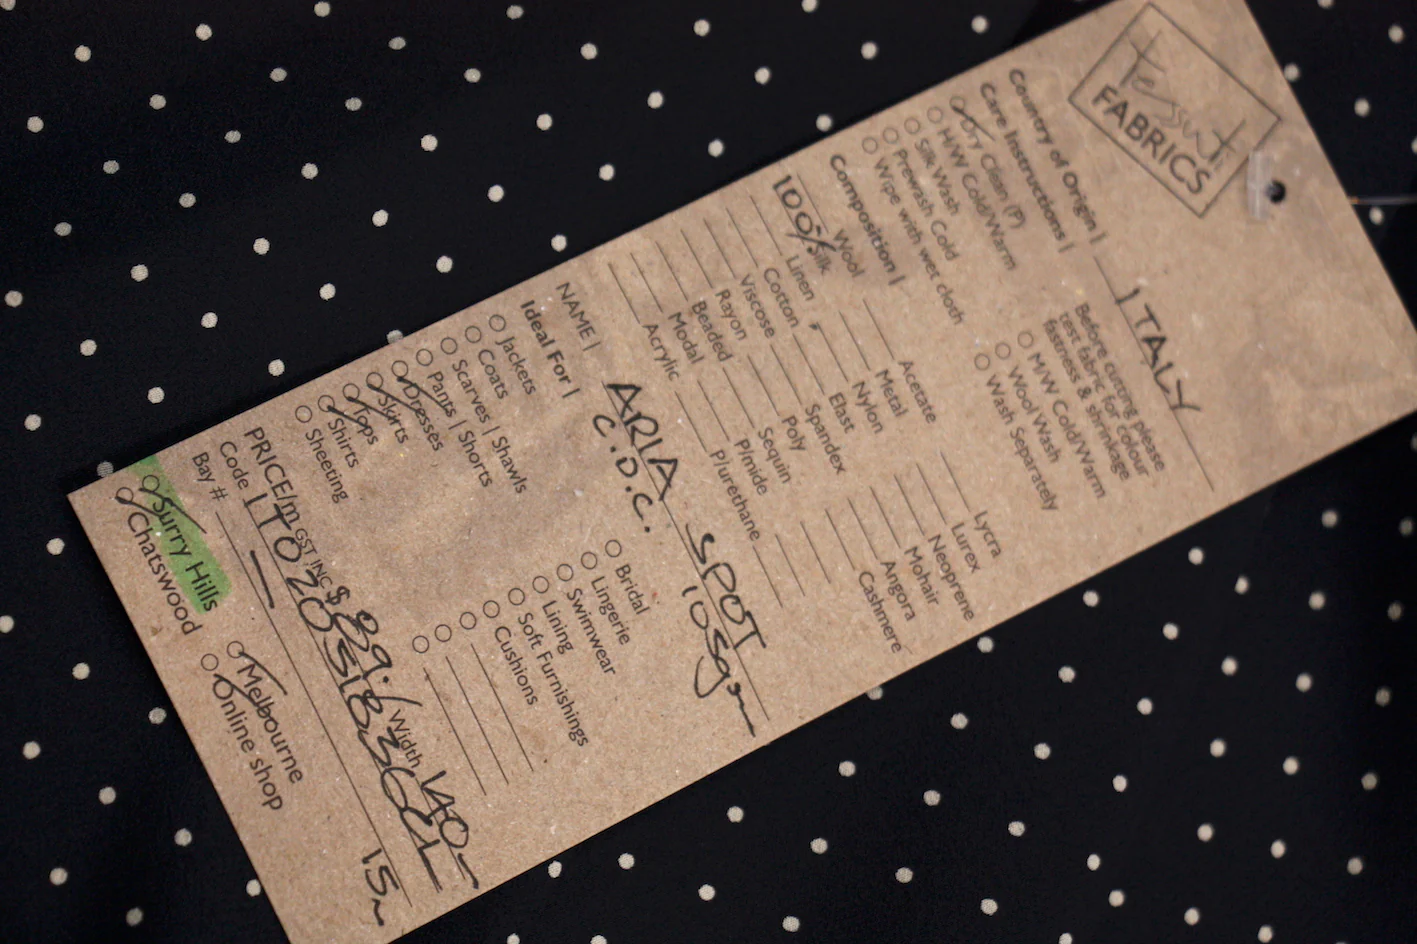 tessuti
FABRICS
Country of Origin | ITALY
Care Instructions |
Dry Clean (P)
H/W Cold/Warm
Silk Wash
Prewash Cold
Wipe with wet cloth
Before cutting please
test fabric for colour
fastness & shrinkage
M/W Cold/Warm
Wool Wash
Wash Separately
Composition |
Wool
100% Silk
Linen
Cotton
Viscose
Rayon
Beaded
Modal
Acrylic
Acetate
Metal
Nylon
Elast
Spandex
Poly
Sequin
P/mide
P/urethane
Lycra
Lurex
Neoprene
Mohair
Angora
Cashmere
NAME | ARIA SPOT
C.D.C. 105gsm
Ideal For |
Jackets
Coats
Scarves | Shawls
Pants | Shorts
Dresses
Skirts
Tops
Shirts
Sheeting
Bridal
Lingerie
Swimwear
Lining
Soft Furnishings
Cushions
PRICE/m GST INC $ 89.- Width 140-
Code
Bay # — 15m
Surry Hills
Chatswood
Melbourne
Online shop